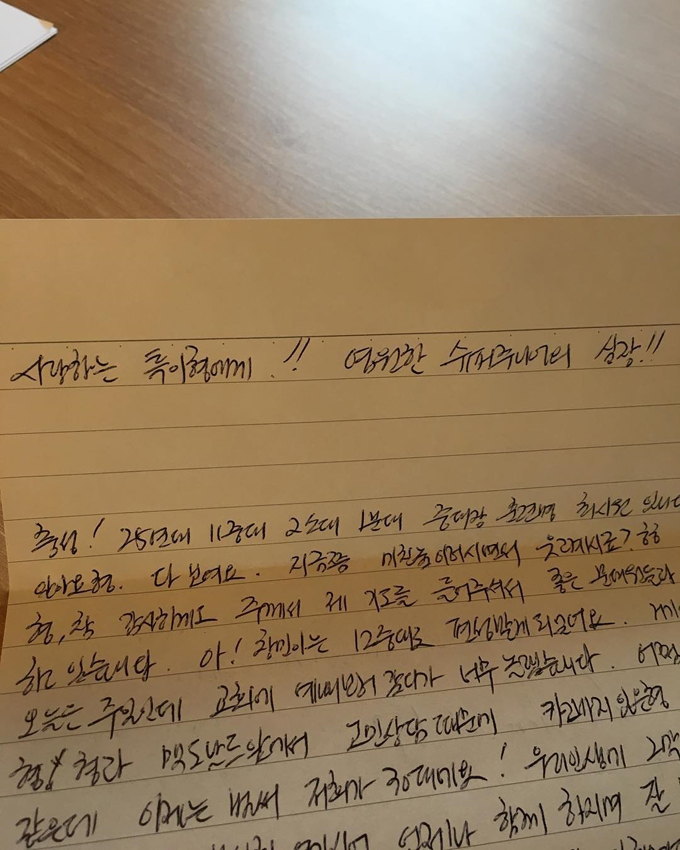 사랑하는 특이형에게!! 영원한 슈퍼주니어의 심장!!
충성! 25연대 11중대 2소대 1분대 중대장 훈련병 최시원 입니다
알아요 형. 다 보여요. 지금쯤 미친놈이러시면서 웃고계시죠? 형
형, 참 감사하게도 주께서 제 기도를 들어주셔서 좋은 분대원들과
하고 있습니다. 아! 창민이는 12중대로 편성받게되었어요.
오늘은 주일인데 교회에 예배보러 갔다가 너무 놀랬습니다.
형과 맥도날드앞에서 고민상담때문에
같은데 이제는 벌써 저희가 30대네요! 우리인생가
언제나 함께 하지며 잘